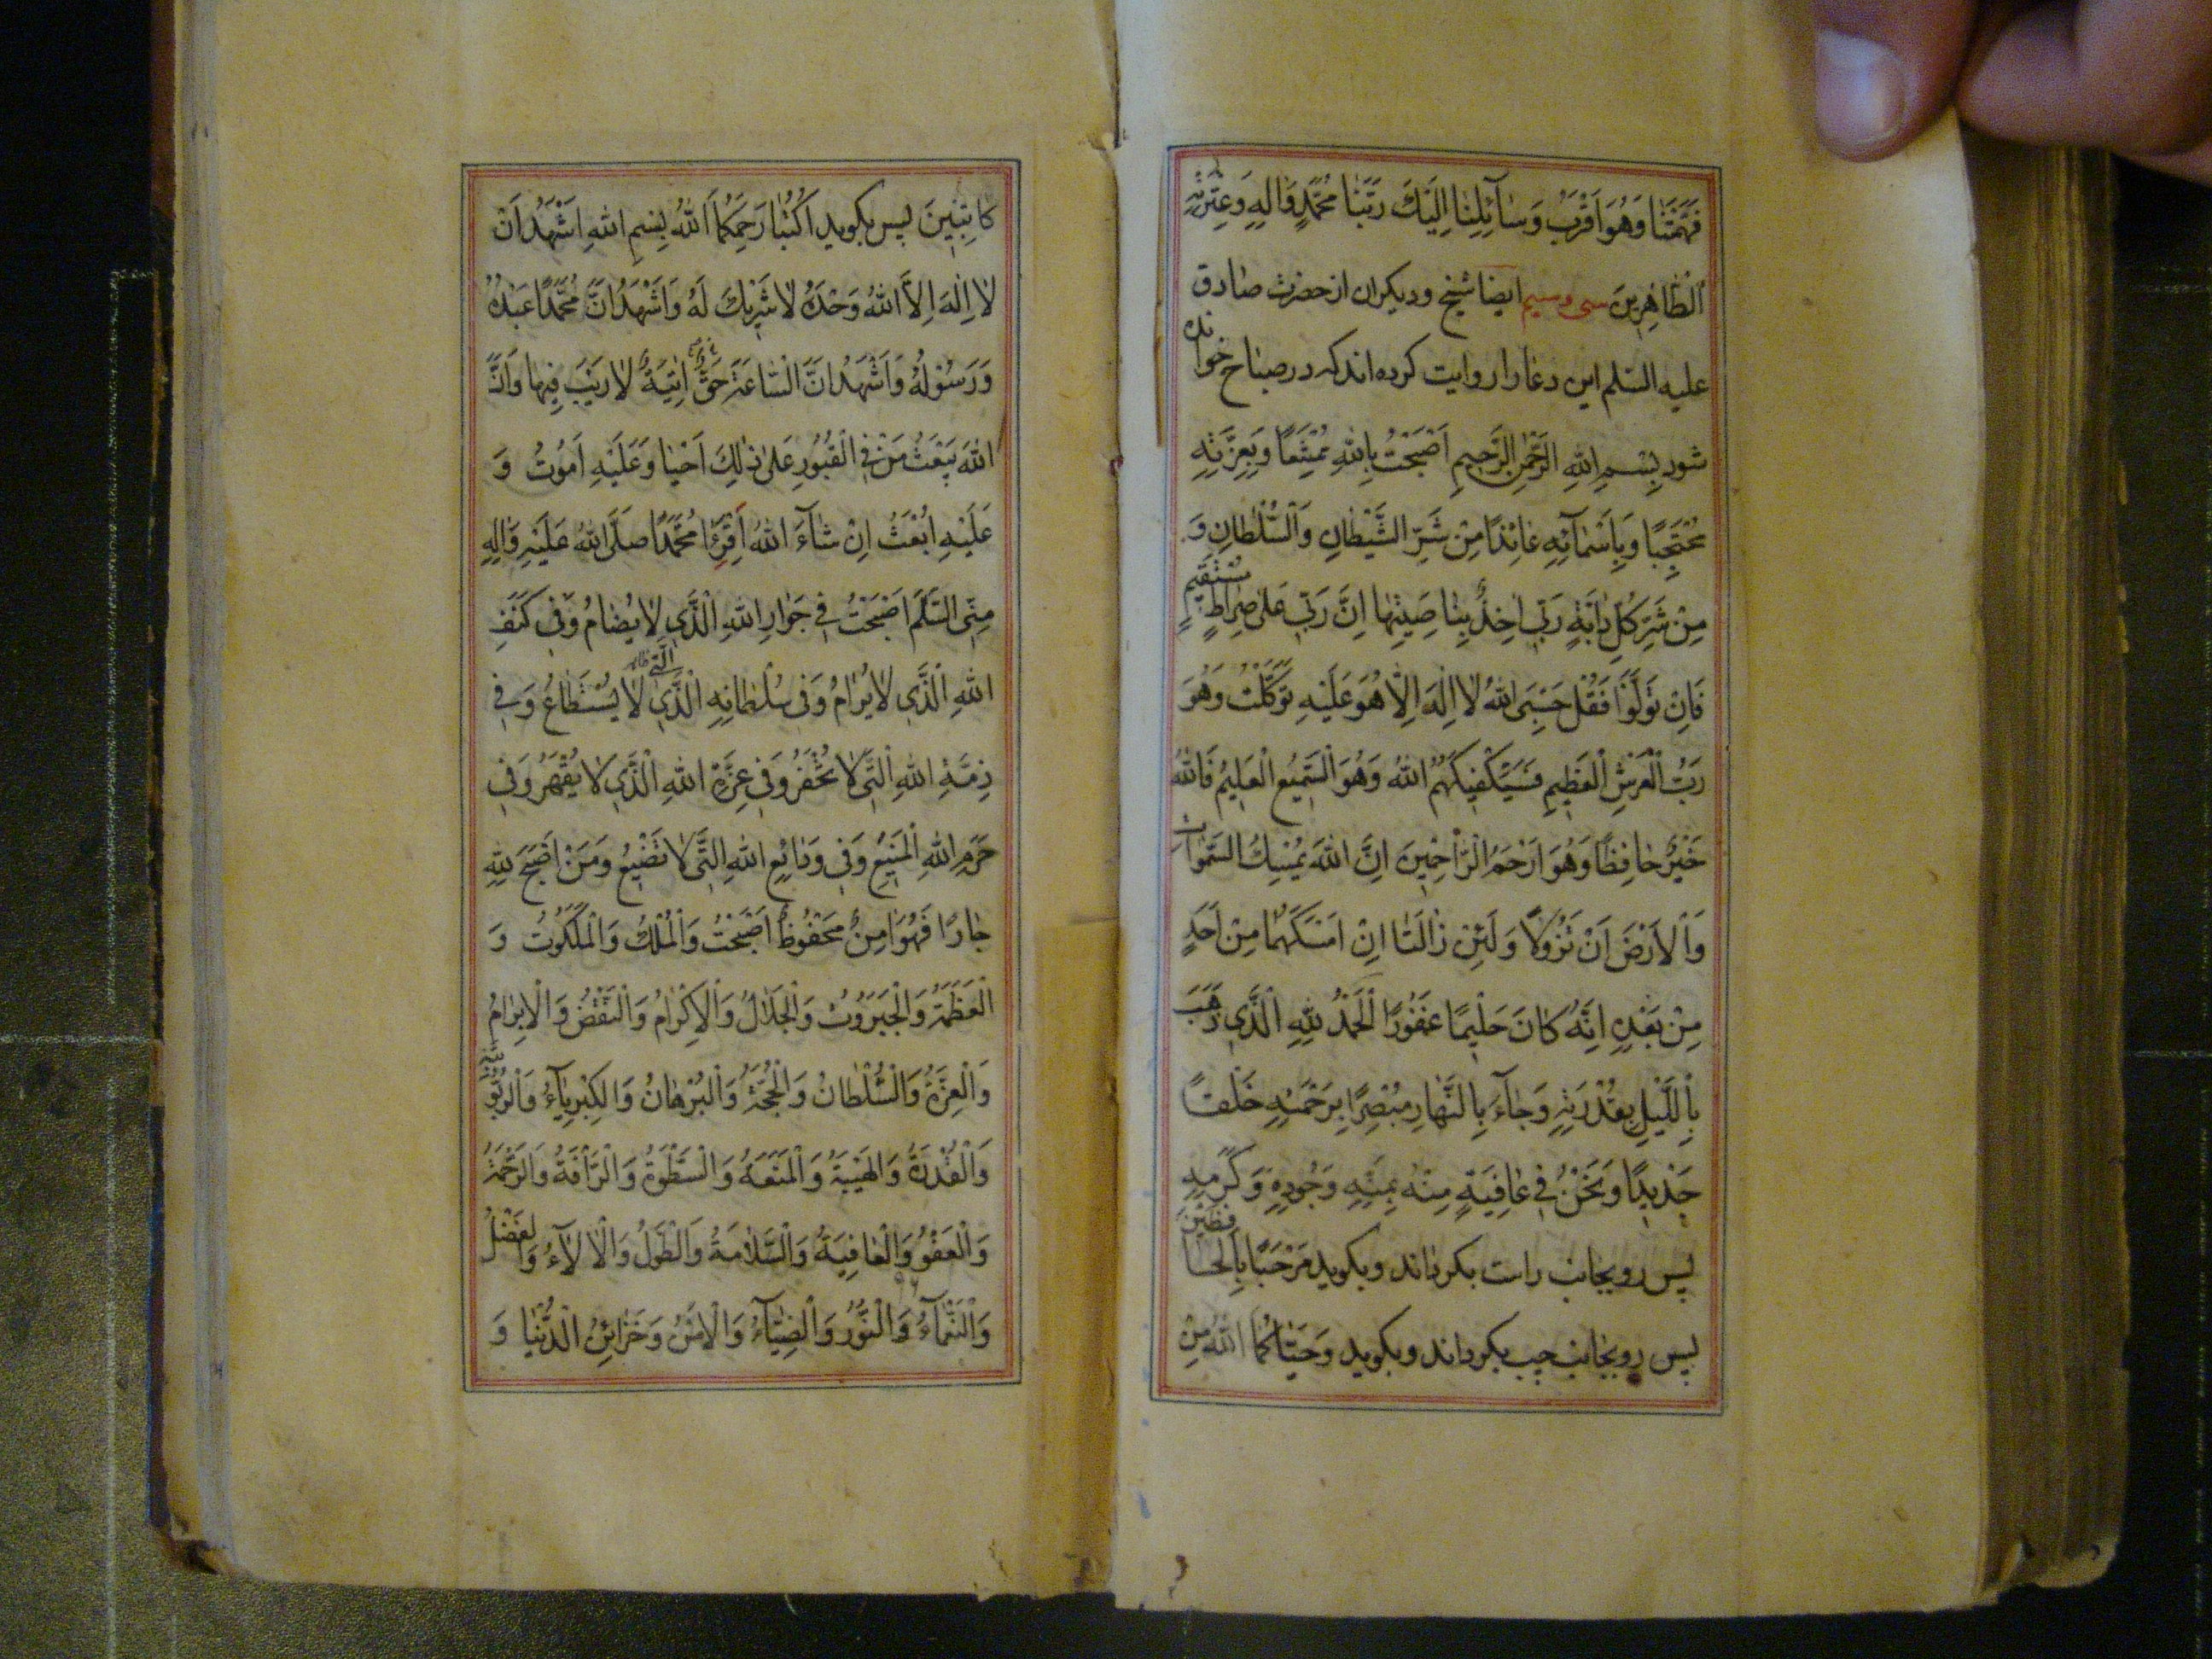 فَهَّمْتَنَا وَهُوَ اَقْرَبُ وَسٰآئِلِنٰا اِلَيْكَ رَبَّنٰا مُحَمَّدٍ وَاٰلِهِ وَعِتْرَتِهِ
اَلطّٰاهِرِينَ سی وسیم ایضا شیخ ودیکران از حضرت صادق
علیه السلم این دعا را روایت کرده اند که در صباح خوانده
شود بِسْمِ اللهِ الرَّحْمٰنِ الرَّحِيمِ اَصْبَحْتُ بِاللهِ مُمْتَنِعًا وَبِعِزَّتِهِ
مُحْتَجِبًا وَبِاَسْمٰآئِهِ عٰائِذًا مِنْ شَرِّ الشَّيْطٰانِ وَالسُّلْطٰانِ وَ
مِنْ شَرِّ كُلِّ دٰابَّةٍ رَبّى اٰخِذٌ بِنٰاصِيَتِهٰا اِنَّ رَبّى عَلىٰ صِرٰاطٍ مُسْتَقيمٍ
فَاِنْ تَوَلَّوْا فَقُلْ حَسْبِىَ اللهُ لٰا اِلٰهَ اِلّٰا هُوَ عَلَيْهِ تَوَكَّلْتُ وَهُوَ
رَبُّ الْعَرْشِ الْعَظيمِ فَسَيَكْفيكَهُمُ اللهُ وَهُوَ السَّميعُ الْعَليمُ فَاللهُ
خَيْرٌ حٰافِظًا وَهُوَ اَرْحَمُ الرّٰاحِمينَ اِنَّ اللهَ يُمْسِكُ السَّمٰوٰاتِ
وَالْاَرْضَ اَنْ تَزُولاٰ وَلَئِنْ زٰالَتٰا اِنْ اَمْسَكَهُمٰا مِنْ اَحَدٍ
مِنْ بَعْدِهِ اِنَّهُ كٰانَ حَليمًا غَفُورًا اَلْحَمْدُ لِلّٰهِ الَّذى ذَهَبَ
بِاللَّيْلِ بِقُدْرَتِهِ وَجٰآءَ بِالنَّهٰارِ مُبْصِرًا بِرَحْمَتِهِ خَلْقًا
جَديدًا وَنَحْنُ فى عٰافِيَةٍ مِنْهُ بِمَنِّهِ وَجُودِهِ وَكَرَمِهِ
پس رو بجانب راست بکرداند و بکوید مَرْحَبًا بِالْحٰافِظَيْنِ
پس رو بجانب چپ بکرداند و بکوید وَحَيّٰاكُمَا اللهُ مِنْ
كٰاتِبَيْنِ پس بکوید اُكْتُبٰا رَحِمَكُمَا اللهُ بِسْمِ اللهِ اَشْهَدُ اَنْ
لٰا اِلٰهَ اِلاَّ اللهُ وَحْدَهُ لٰا شَريكَ لَهُ وَاَشْهَدُ اَنَّ مُحَمَّدًا عَبْدُهُ
وَرَسُولُهُ وَاَشْهَدُ اَنَّ السّٰاعَةَ حَقٌّ اٰتِيَةٌ لٰا رَيْبَ فيهٰا وَاَنَّ
اللهَ يَبْعَثُ مَنْ فِى الْقُبُورِ عَلىٰ ذٰلِكَ اَحْيٰا وَعَلَيْهِ اَمُوتُ وَ
عَلَيْهِ اُبْعَثُ اِنْ شٰآءَ اللهُ اَقْرِئٰا مُحَمَّدًا صَلَّى اللهُ عَلَيْهِ وَاٰلِهِ
مِنِّى السَّلٰمَ اَصْبَحْتُ فى جَوٰارِ اللهِ الَّذى لٰا يُضٰامُ وَفى كَنَفِ
اللهِ الَّذى لٰا يُرٰامُ وَفى سُلْطٰانِهِ الَّذى الَّتى لٰا يُسْتَطٰاعُ وَفى
ذِمَّةِ اللهِ الَّتى لٰا تُخْفَرُ وَفى عِزَّةِ اللهِ الَّذى لٰا يُقْهَرُ وَفى
حَرَمِ اللهِ الْمَنيعِ وَفى وَدٰايِعِ اللهِ الَّتى لٰا تَضيعُ وَمَنْ اَصْبَحَ لِلّٰهِ
جٰارًا فَهُوَ اٰمِنٌ مَحْفُوظٌ اَصْبَحْتُ وَالْمُلْكُ وَالْمَلَكُوتُ وَ
الْعَظَمَةُ وَالْجَبَرُوتُ وَالْجَلٰالُ وَالْاِكْرٰامُ وَالنَّقْضُ وَالْاِبْرٰامُ
وَالْعِزَّةُ وَالسُّلْطٰانُ وَالْحُجَّةُ وَالْبُرْهٰانُ وَالْكِبْرِيٰآءُ وَالرُّبُوبِيَّةُ
وَالْقُدْرَةُ وَالْهَيْبَةُ وَالْمَنَعَةُ وَالسَّطْوَةُ وَالرَّأْفَةُ وَالرَّحْمَةُ
وَالْعَفْوُ وَالْعٰافِيَةُ وَالسَّلٰامَةُ وَالطَّوْلُ وَالْاٰلٰآءُ وَالْفَضْلُ
وَالنَّعْمٰآءُ وَالنُّورُ وَالضِّيٰآءُ وَالْاَمْنُ وَخَزٰائِنُ الدُّنْيٰا وَ